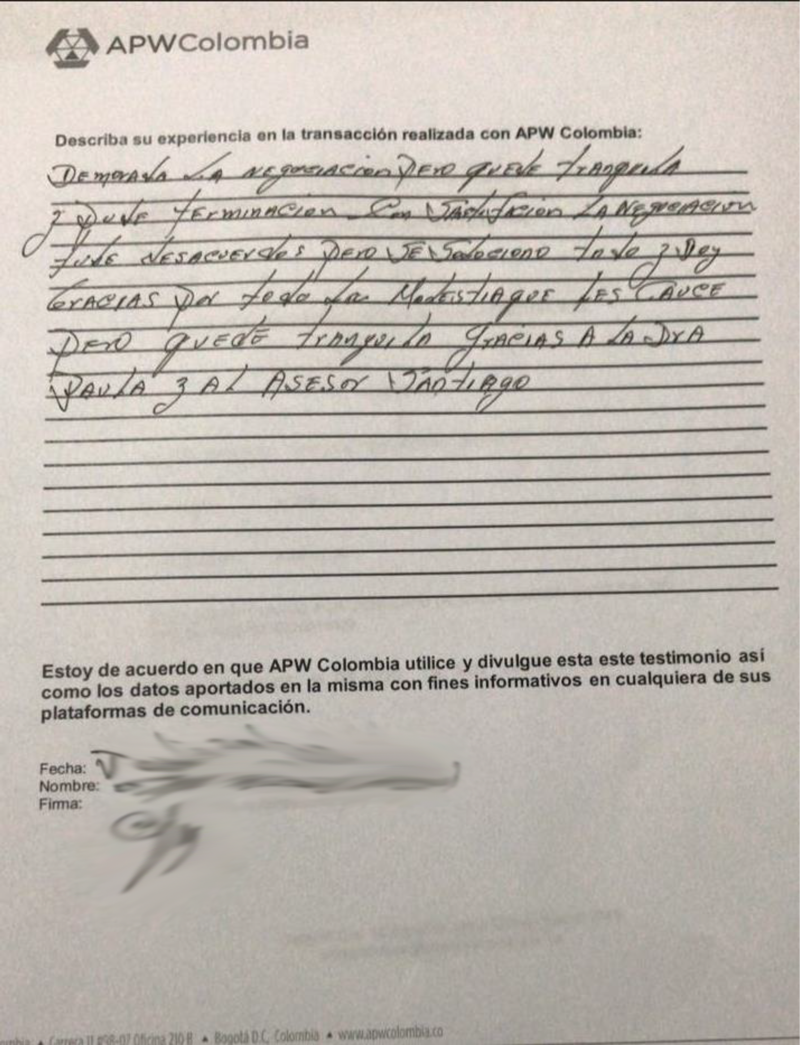 APWColombia
Describa su experiencia en la transacción realizada con APW Colombia:
DEMORADA LA NEGOCIACION PERO QUEDE TRANQUILA
Y PUDE TERMINACION CON LA NEGOCIACION
TUVE DESACUERDOS PERO SE SOLUCIONO TODO Y DOY
GRACIAS POR TODO LA MOLESTIA QUE LES CAUCE
PERO QUEDE TRANQUILA GRACIAS A LA DRA
PAULA Y AL ASESOR SANTIAGO
Estoy de acuerdo en que APW Colombia utilice y divulgue esta este testimonio así
como los datos aportados en la misma con fines informativos en cualquiera de sus
plataformas de comunicación.
Fecha:
Nombre:
Firma:
Carrera 11 #98-07 Oficina 210 B ▲ Bogotá D.C. Colombia ▲ www.apwcolombia.co